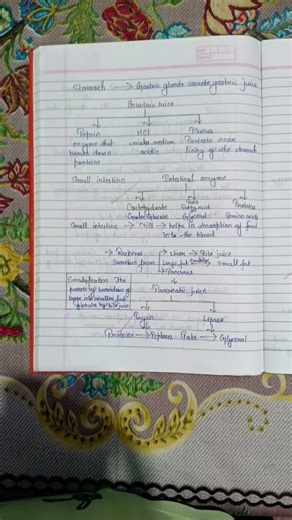 Stomach → Gastric glands secrete gastric juice
Gastric juice
Pepsin HCl Mucus
enzyme that makes medium Protects inner
break down acidic lining of the stomach
proteins
Small intestine Intestinal enzyme
Carbohydrate Fatty acid Proteins
Glucose Glycerol Amino acids
Small intestine → Villi → helps in absorption of food
into the blood
→ Liver → Bile juice
Large fat → Small fat
→ Pancreas
Emulsification The
process of breakdown of Pancreatic juice
large into smaller fat
globules by bile juice
Trypsin Lipase
Proteins → Peptones Fats → Glycerol